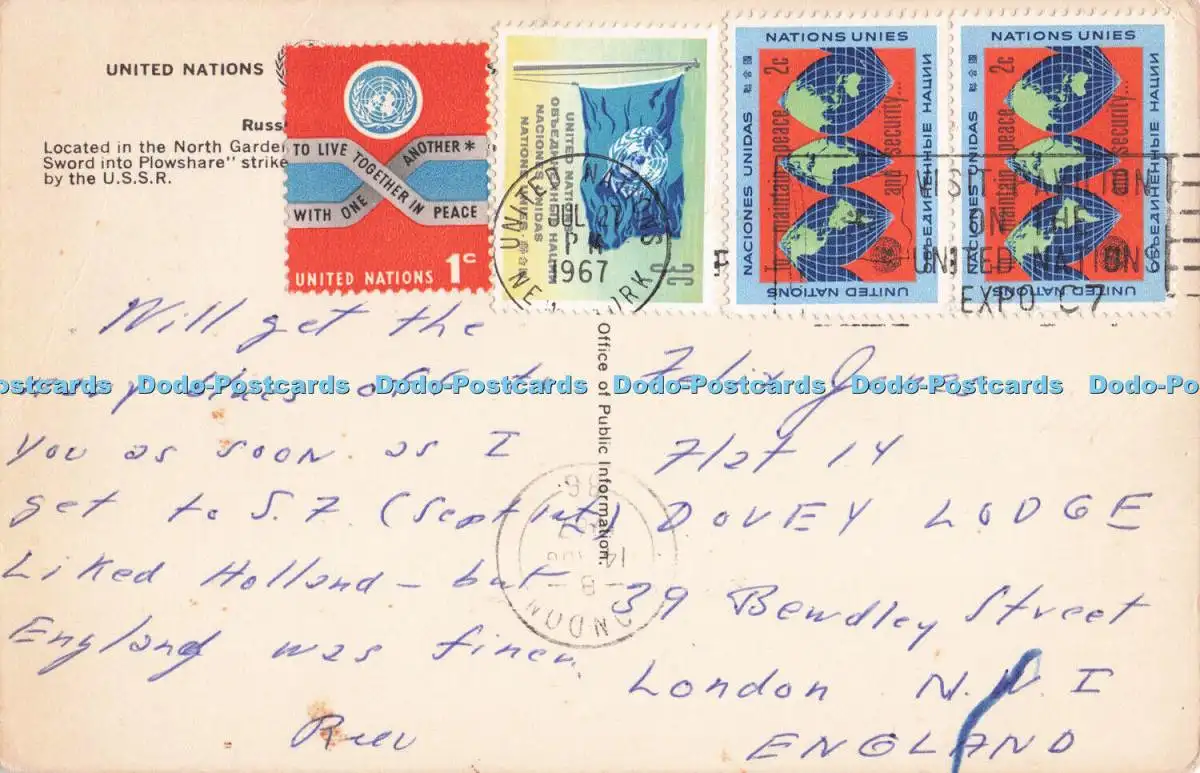 UNITED NATIONS
Russ
Located in the North Garde
Sword into Plowshare" strike
by the U.S.S.R.
TO LIVE TOGETHER IN PEACE
WITH ONE ANOTHER*
UNITED NATIONS 1c
UNITED NATIONS
ОБЪЕДИНЕННЫЕ НАЦИИ
NACIONES UNIDAS
NATIONS UNIES
3c
UNITED NATIONS
JUL 27
PM
1967
NEW YORK
NATIONS UNIES
NACIONES UNIDAS
to maintain peace 2c
and security...
ОБЪЕДИНЕННЫЕ НАЦИИ
UNITED NATIONS
NATIONS UNIES
NACIONES UNIDAS
to maintain peace 2c
and security...
ОБЪЕДИНЕННЫЕ НАЦИИ
UNITED NATIONS
VISIT PAVILION
ON THE
UNITED NATIONS
EXPO 67
Will get the
off to
you as soon as I
get to S.F. (Sept 1st)
Liked Holland - but
England was finer.
Office of Public Information.
LONDON
Felix Jones
Flat 14
DOVEY LODGE
39 Bewdley Street
London N.W I
ENGLAND
Dodo-Postcards Dodo-Postcards Dodo-Postcards Dodo-Postcards Dodo-Postcards